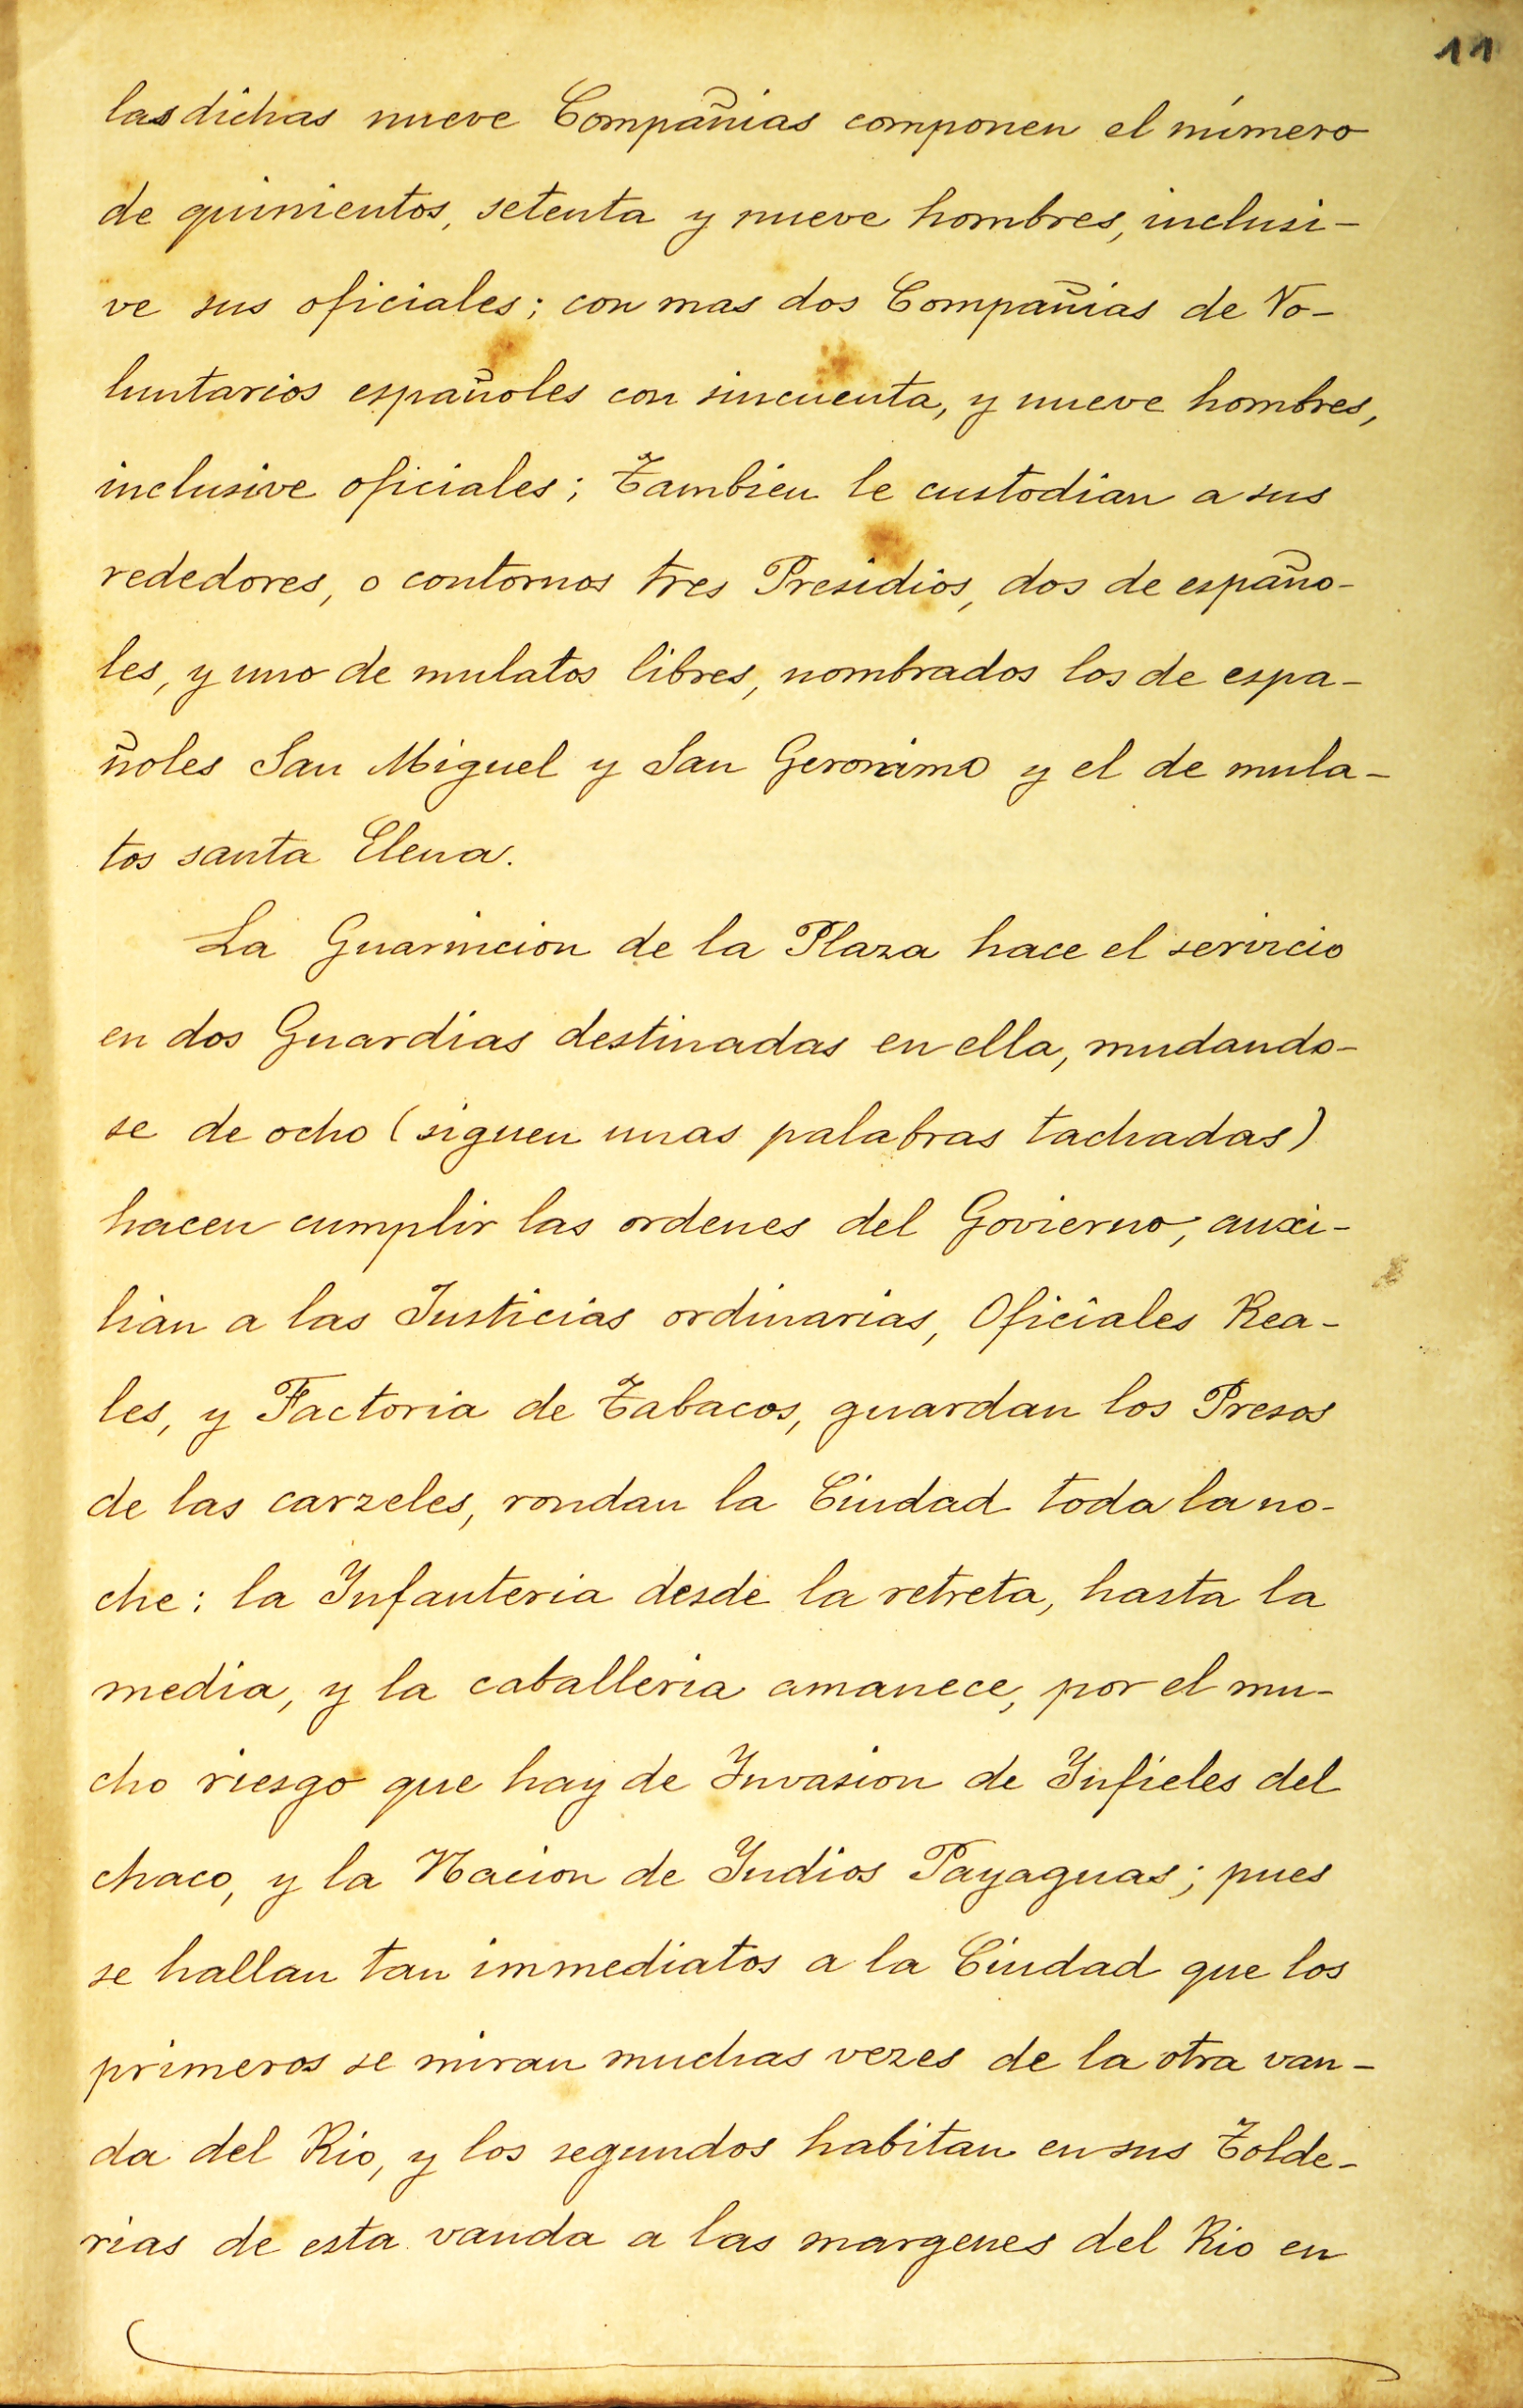 11
las dichas nueve Compañias componen el número
de quinientos, setenta y nueve hombres, inclusi-
ve sus oficiales; con mas dos Compañias de Vo-
luntarios españoles con sincuenta, y nueve hombres,
inclusive oficiales; Tambien le custodian a sus
rededores, o contornos tres Presidios, dos de españo-
les, y uno de mulatos libres, nombrados los de espa-
ñoles San Miguel y San Geronimo y el de mula-
tos santa Elena.
La Guarnicion de la Plaza hace el servicio
en dos Guardias destinadas en ella, mudando-
se de ocho (siguen unas palabras tachadas)
hacen cumplir las ordenes del Govierno, auxi-
lian a las Justicias ordinarias, Oficiales Rea-
les, y Factoria de Tabacos, guardan los Presos
de las carzeles, rondan la Ciudad toda la no-
che: la Infanteria desde la retreta, hasta la
media, y la caballeria amanece, por el mu-
cho riesgo que hay de Invasion de Infieles del
chaco, y la Nacion de Indios Payaguas; pues
se hallan tan immediatos a la Ciudad que los
primeros se miran muchas vezes de la otra van-
da del Rio, y los segundos habitan en sus Tolde-
rias de esta vanda a las margenes del Rio en